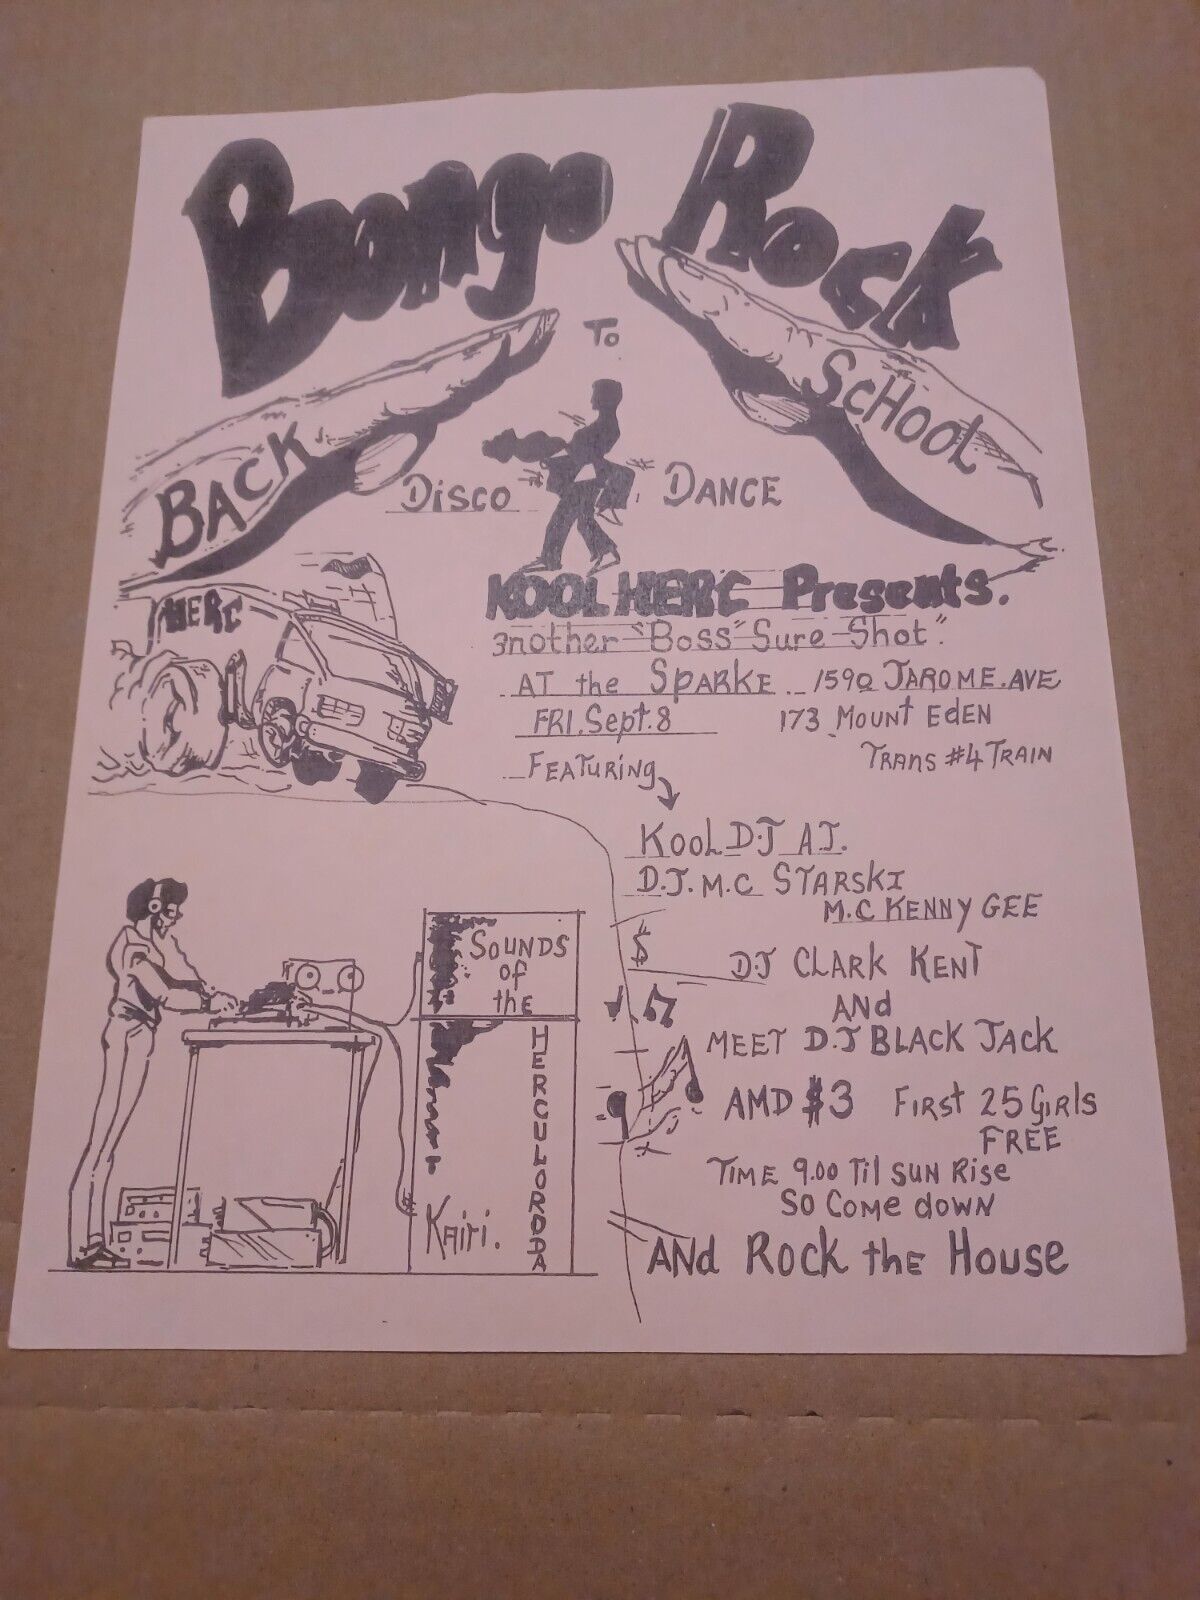 Bongo Rock
BACK To SCHOOL
Disco DANCE
HERC
KOOL HERC Presents.
Another "Boss" Sure-Shot".
AT the SPARKE 1590 JAROME.AVE
FRI.Sept.8 173 MOUNT EDEN
TRANS #4 TRAIN
FEATURING
KOOL DJ AJ.
D.J. M.C STARSKI
M.C KENNY GEE
$
DJ CLARK KENT
AND
MEET D.J BLACK JACK
AMD $3 FIRST 25 GIRLS
FREE
TIME 9.00 Til SUN RISE
SO COME DOWN
AND ROCK the HOUSE
SOUNDS
of
the
HERCULORDDA
Kairi.